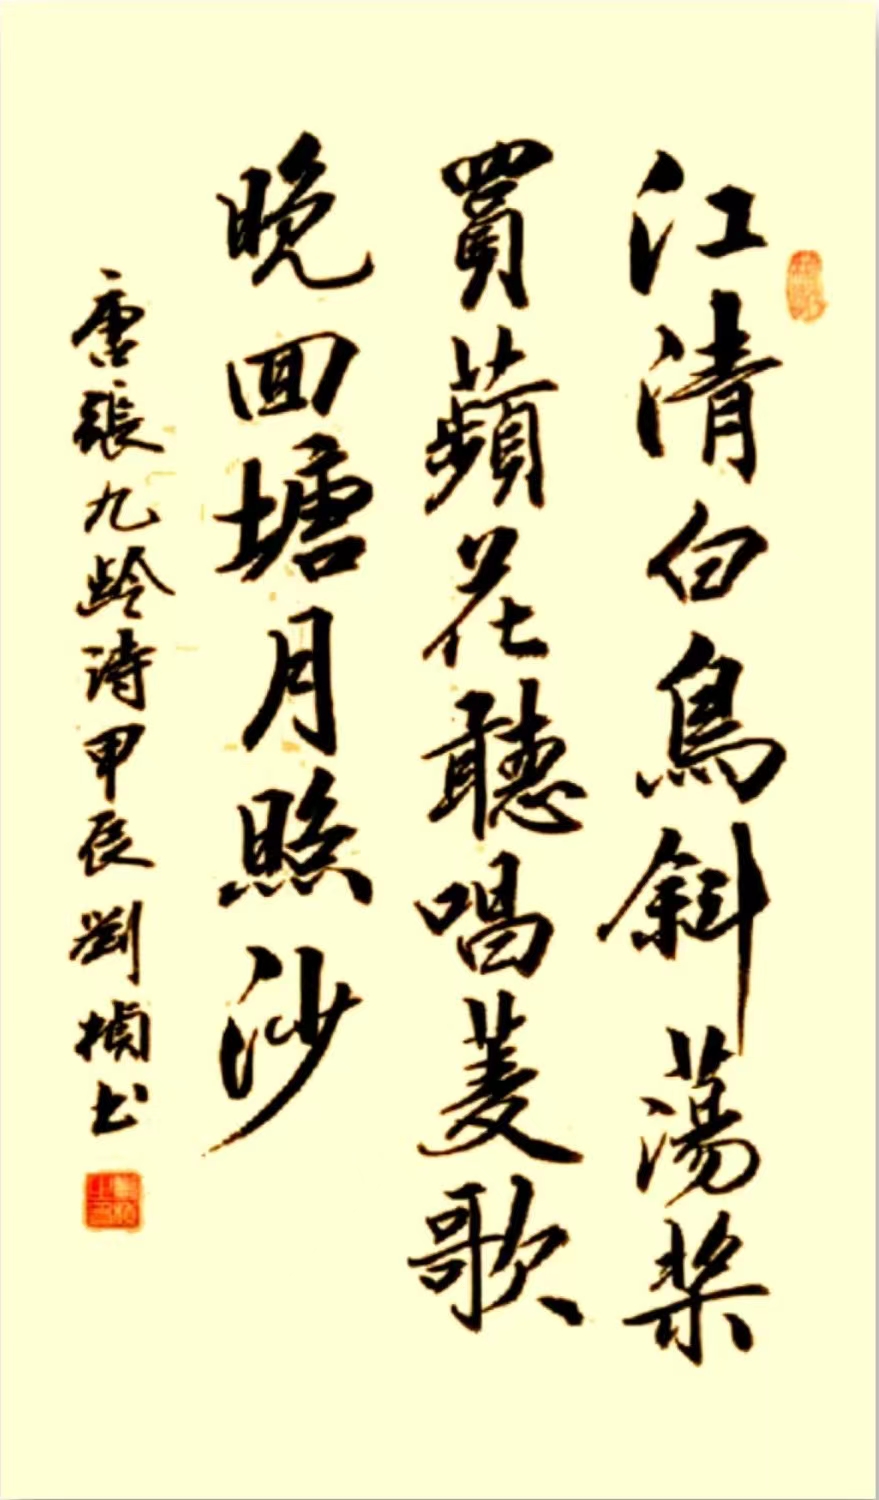 江清白鳥斜蕩槳
罥蘋花聽唱菱歌
晚回塘月照沙
唐張九齡詩甲辰劉楨书